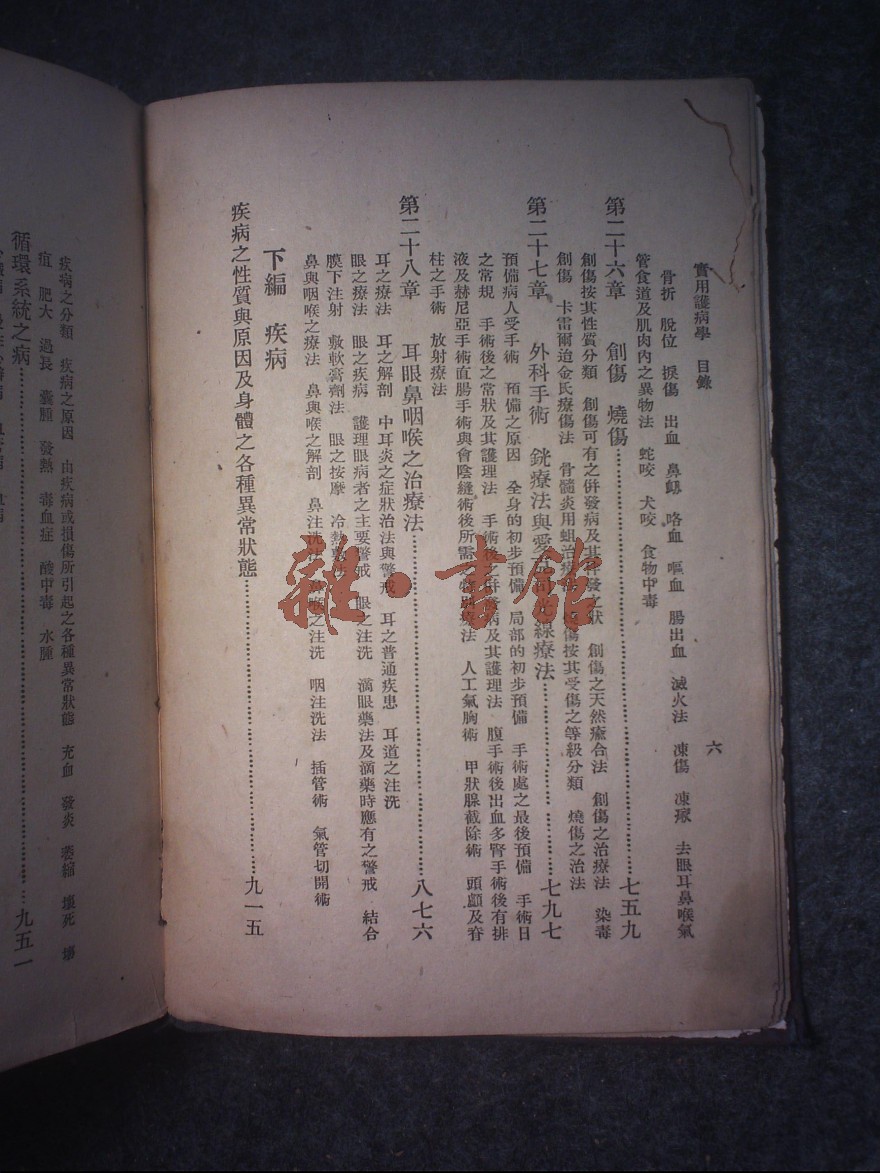 實用護病學　目錄　六
骨折　脫位　捩傷　出血　鼻衂　咯血　嘔血　腸出血　滅火法　凍傷　凍瘃　去眼耳鼻喉氣
管食道及肌肉內之異物法　蛇咬　犬咬　食物中毒
第二十六章　創傷　燒傷……七五九
創傷按其性質分類　創傷可有之併發病及其併發之狀　創傷之天然癒合法　創傷之治療法　染毒
創傷　卡雷爾迨金氏療傷法　骨髓炎用蛆治療法　燒傷按其受傷之等級分類　燒傷之治法
第二十七章　外科手術　銧療法與愛克司光線療法……七九七
預備病人受手術　預備之原因　全身的初步預備　局部的初步預備　手術處之最後預備　手術日
之常規　手術後之常狀及其護理法　手術後之併發病及其護理法　腹手術後出血多腎手術後有排
液及赫尼亞手術直腸手術與會陰縫術後所需之特別療法　人工氣胸術　甲狀腺截除術　頭顱及脊
柱之手術　放射療法
第二十八章　耳眼鼻咽喉之治療法……八七六
耳之療法　耳之解剖　中耳炎之症狀治法與警戒　耳之普通疾患　耳道之注洗
眼之療法　眼之疾病　護理眼病者之主要警戒　眼之注洗　滴眼藥法及滴藥時應有之警戒　結合
膜下注射　敷軟膏劑法　眼之按摩　冷熱敷法
鼻與咽喉之療法　鼻與喉之解剖　鼻注洗法　鼻喉之注洗　咽注洗法　插管術　氣管切開術
下編　疾病
疾病之性質與原因及身體之各種異常狀態……九一五
疾病之分類　疾病之原因　由疾病或損傷所引起之各種異常狀態　充血　發炎　萎縮　壞死　壞
疽　肥大　過長　囊腫　發熱　毒血症　酸中毒　水腫
循環系統之病……九五一
雜·書館